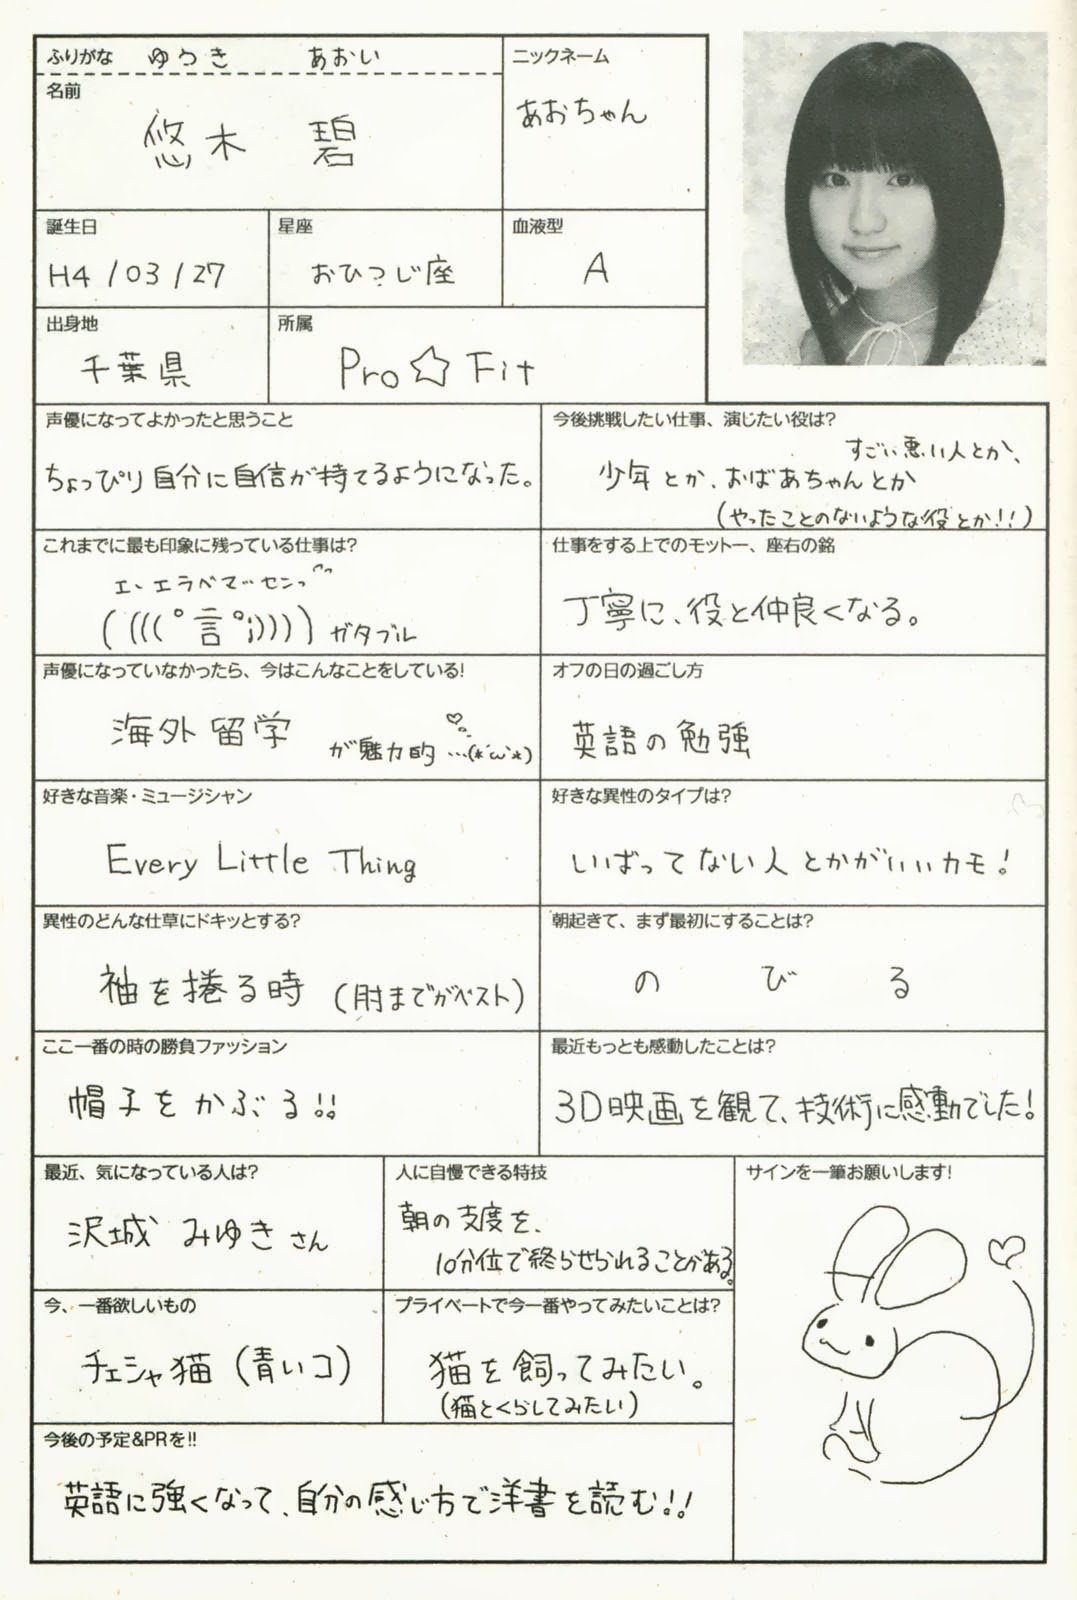 ふりがな ゆうき あおい
名前
悠木 碧
ニックネーム
あおちゃん
誕生日
H4/03/27
星座
おひつじ座
血液型
A
出身地
千葉県
所属
Pro☆Fit
声優になってよかったと思うこと
ちょっぴり自分に自信が持てるようになった。
今後挑戦したい仕事、演じたい役は?
すごい悪い人とか、
少年とか、おばあちゃんとか
(やったことのないような役とか!!)
これまでに最も印象に残っている仕事は?
エ、エラベマセンっ
((((°言°;)))) ガタブル
仕事をする上でのモットー、座右の銘
丁寧に、役と仲良くなる。
声優になっていなかったら、今はこんなことをしている!
海外留学 が魅力的…(*´ω`*)
オフの日の過ごし方
英語の勉強
好きな音楽・ミュージシャン
Every Little Thing
好きな異性のタイプは?
いばってない人とかがいいカモ!
異性のどんな仕草にドキッとする?
袖を捲る時 (肘までがベスト)
朝起きて、まず最初にすることは?
のびる
ここ一番の時の勝負ファッション
帽子をかぶる!!
最近もっとも感動したことは?
3D映画を観て、技術に感動でした!
最近、気になっている人は?
沢城 みゆきさん
人に自慢できる特技
朝の支度を、
10分位で終らせられることがある。
サインを一筆お願いします!
今、一番欲しいもの
チェシャ猫(青いコ)
プライベートで今一番やってみたいことは?
猫を飼ってみたい。
(猫とくらしてみたい)
今後の予定&PRを!!
英語に強くなって、自分の感じ方で洋書を読む!!